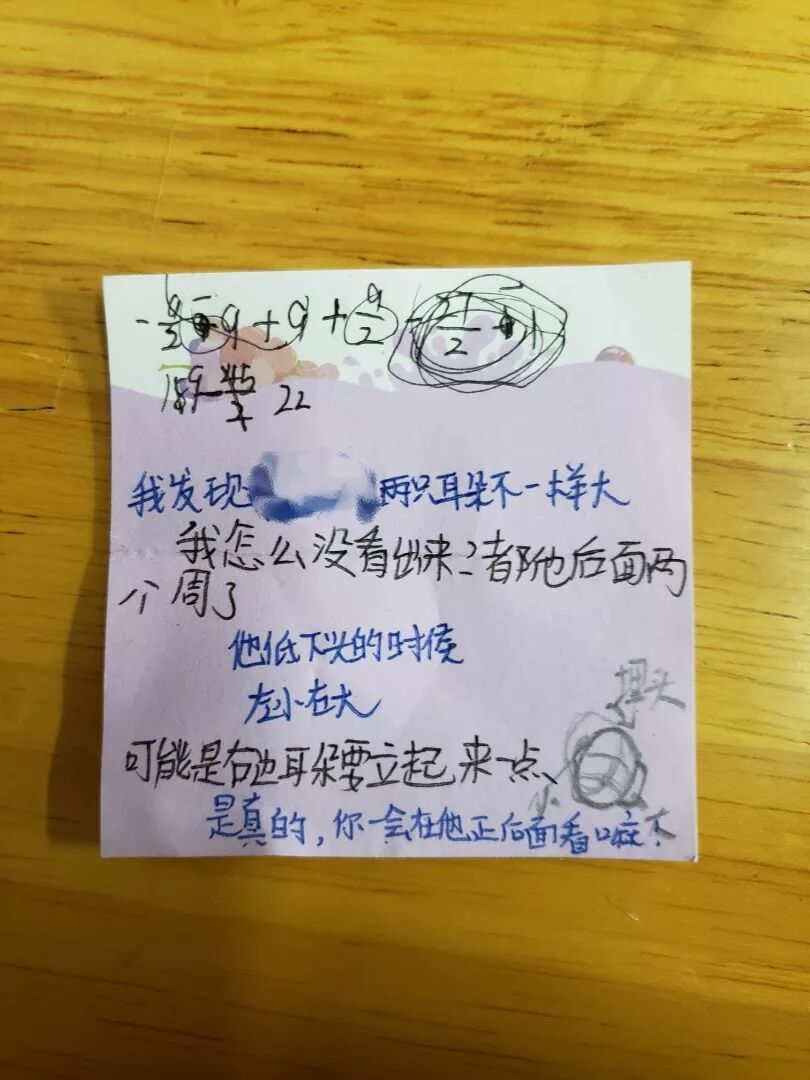 -9/2 - 9 + 9 + 9/2 - 27/2
189 - 45/2 22
我发现 两只耳朵不一样大
我怎么没看出来？都他后面两
个周了
他低下头的时候
左小右大
埋头
可能是右边耳朵要立起来一点、
小 大
是真的，你一会在他正后面看嘛！